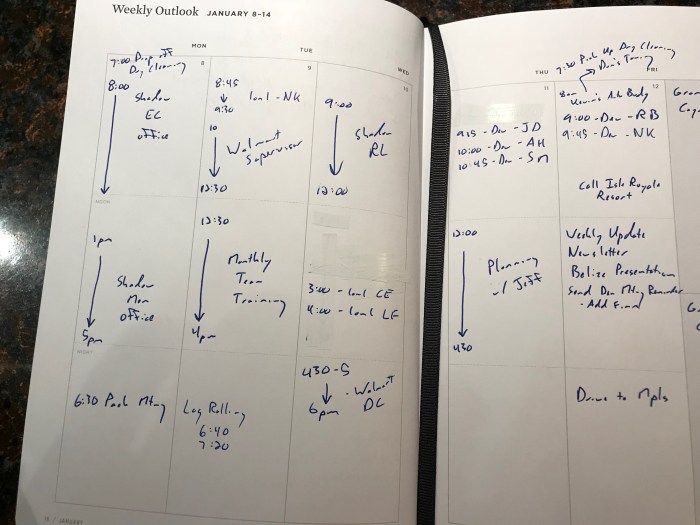 Weekly Outlook JANUARY 8-14
MON
7:00 Drop off
Dry Cleaning
8
8:00
Shadow
EC
office
NOON
1pm
Shadow
Mon
office
5pm
NIGHT
6:30 Park Mtng
TUE
9
8:45
9:30
1on1 - NK
10
Walmart
Supervisor
12:30
12:30
Monthly
Team
Training
4pm
Log Rolling
6:40
7:20
WED
10
9:00
Shadow
RL
12:00
3:00 - 1on1 CE
4:00 - 1on1 LF
430-5
- Walmart
DC
6pm
THU
11
915 - Dev - JD
10:00 - Dev - AH
10:45 - Dev - SM
12:00
Planning
w/ Jeff
430
7:30 Pick Up Dry Cleaning
FRI
12
8am
9:00 - Dev - RB
9:45 - Dev - NK
Call Isle Royale
Resort
Weekly Update
Newsletter
Belize Presentation
Send Dev Mtng Reminder
Drive to Mpls
16 / JANUARY